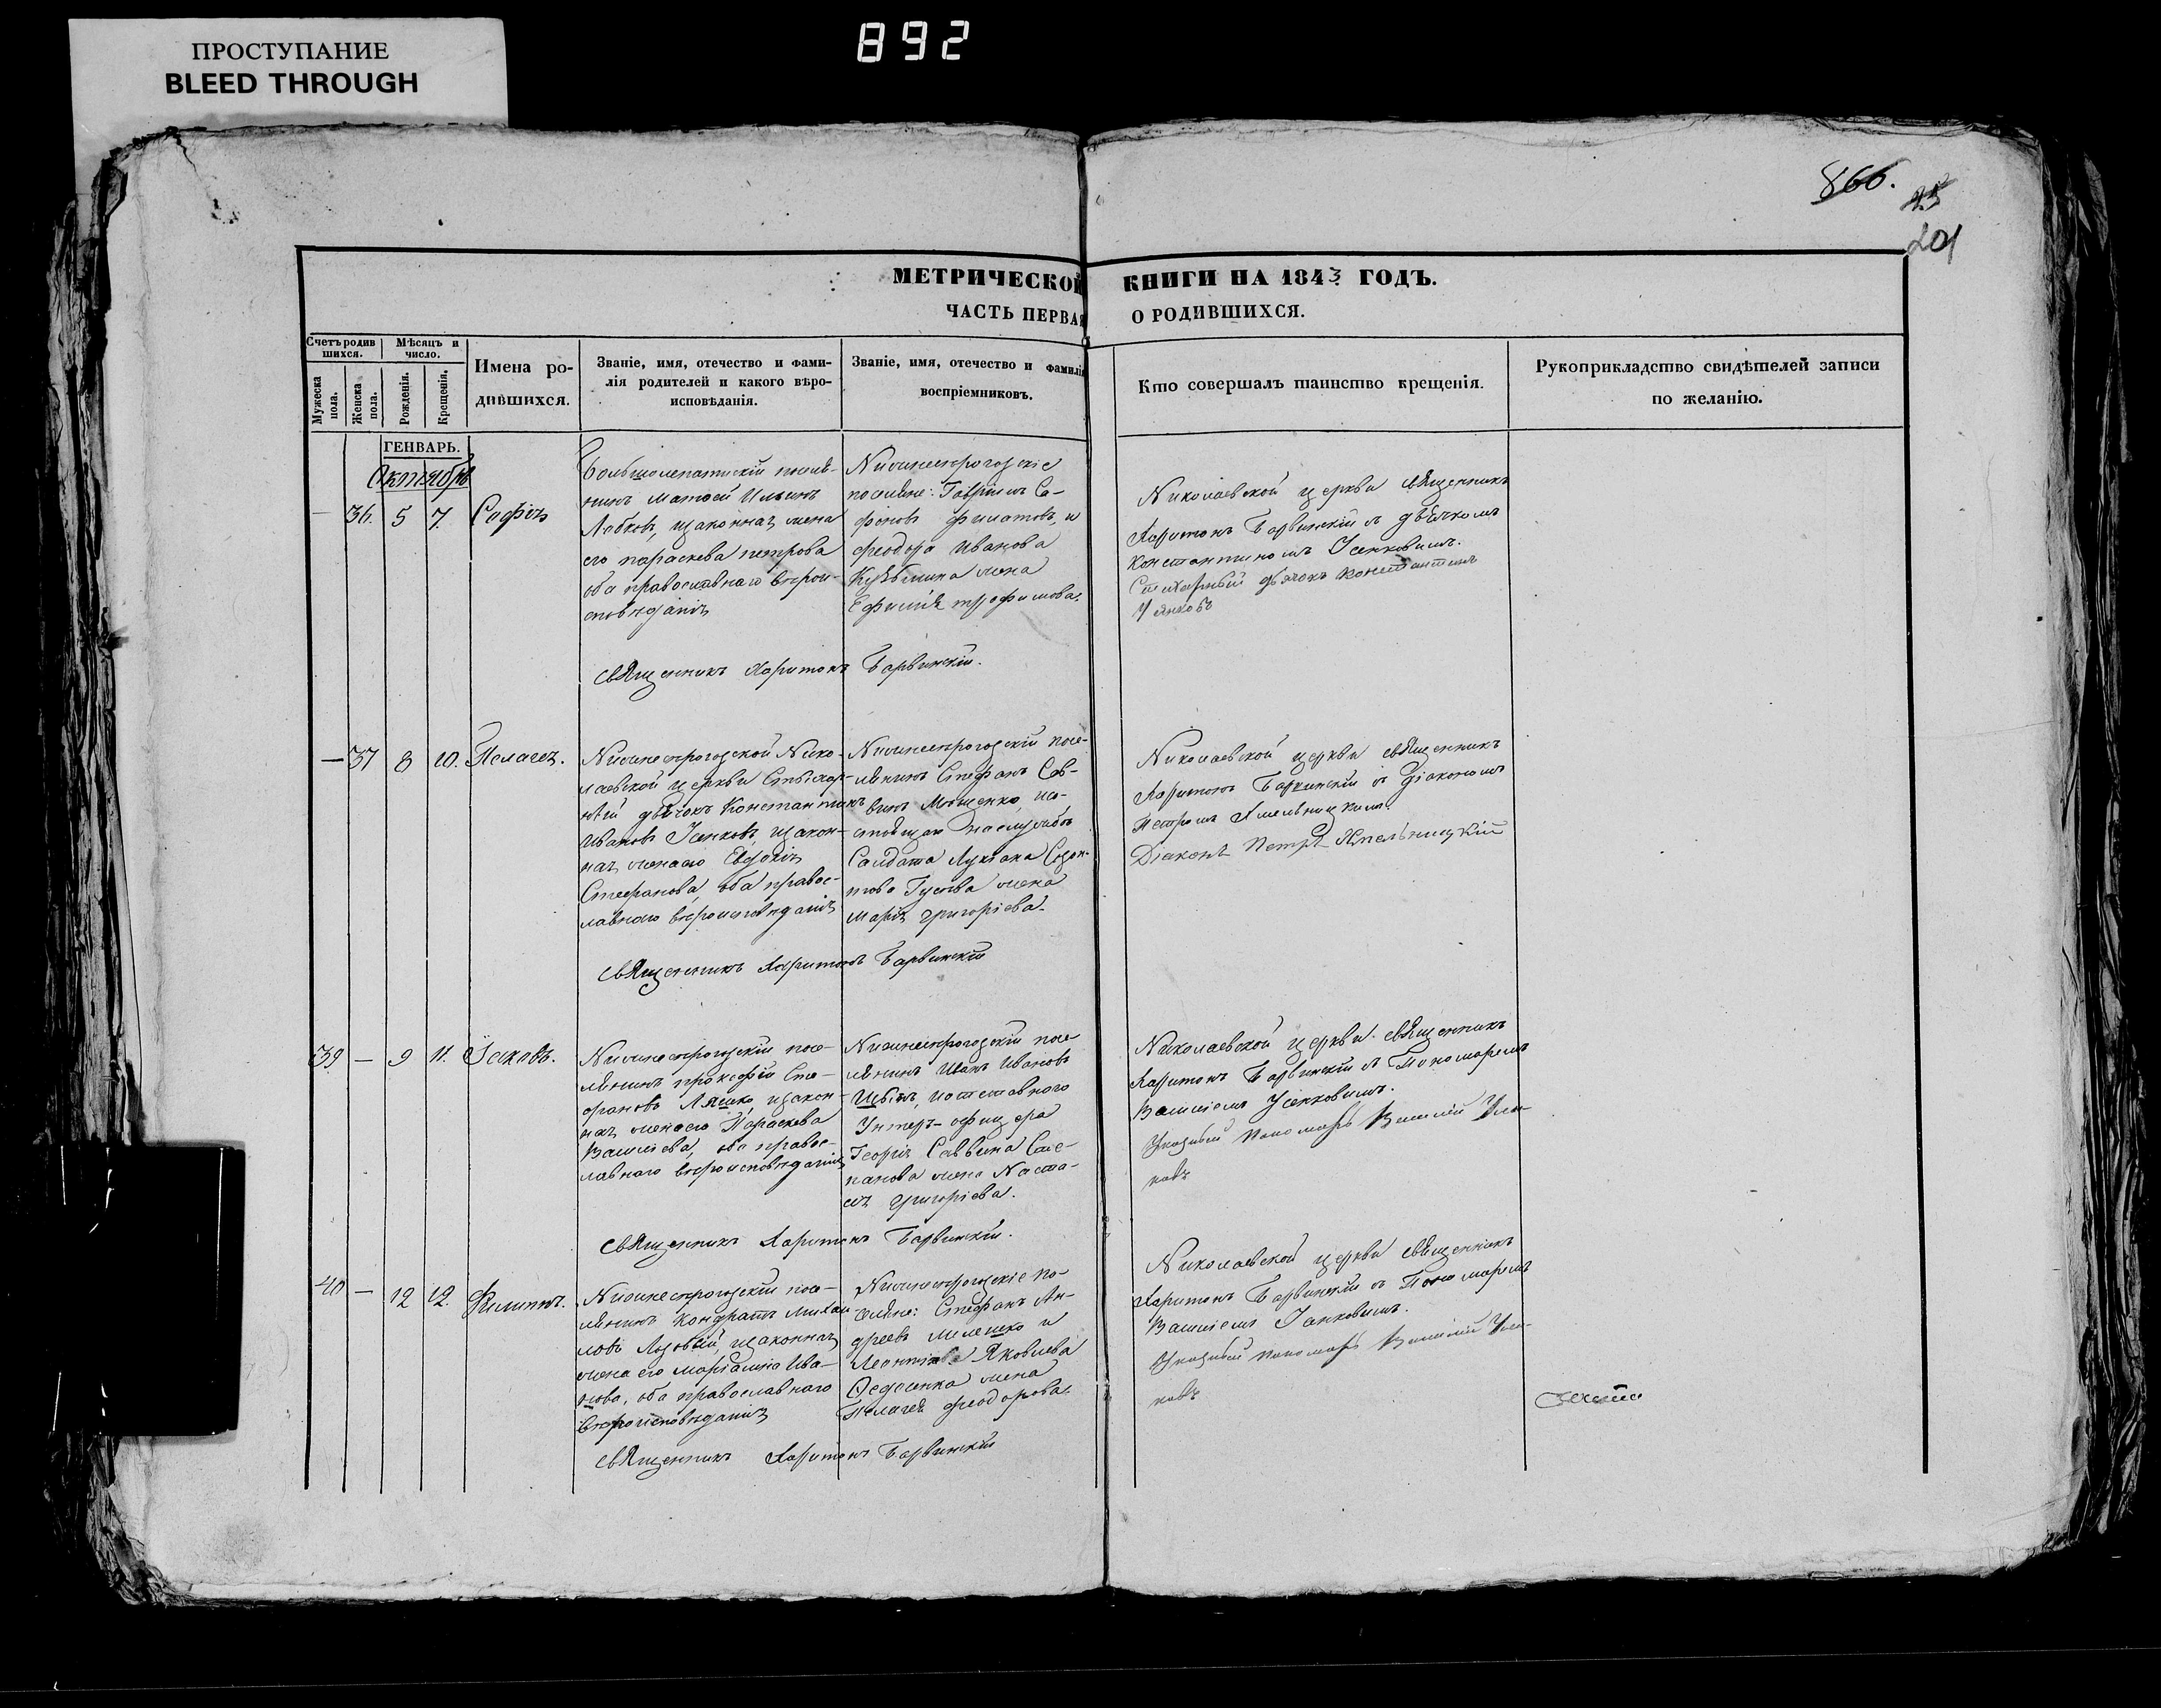 ПРОСТУПАНИЕ
BLEED THROUGH
892
866.
25
201
МЕТРИЧЕСКОЙ КНИГИ НА 1843 ГОДЪ.
ЧАСТЬ ПЕРВАЯ О РОДИВШИХСЯ.
Счетъ родив
шихся.
Мужеска
пола.
Женска
пола.
Мѣсяцъ и
число.
Рожденія.
Крещенія.
Имена ро-
дившихся.
Званіе, имя, отечество и фами-
лія родителей и какого вѣро-
исповѣданія.
Званіе, имя, отечество и фамилія
воспріемниковъ.
Кто совершалъ таинство крещенія.
Рукоприкладство свидѣтелей записи
по желанію.
ГЕНВАРЬ.
Октябрь
— 36. 5 7. Софія
Большолепатискій поселя-
нинъ Матфей Ильинъ
Лобковъ, изаконная жена
его параскева петрова
оба православнаго вѣрои-
сповѣданія
Нижнесѣрогозскіе
поселяне: Гавріилъ Са-
фоновъ филатовъ, и
феодора Иванова
Кузьмина жена
Ефимія трофимова.
Николаевской церкви священникъ
Харитонъ Барвинскій съ дьячкомъ
Константиномъ Усенковымъ.
Стихарный дьячокъ Константинъ
священникъ Харитонъ Барвинскій.
— 37 8 10. Пелагея.
Нижнесѣрогозской Нико-
лаевской церкви Стихар-
ный дьячокъ Константинъ
Ивановъ изакон-
ная женаего Евдокія
Стефанова, оба правос-
лавнаго вѣроисповѣданія
Нижнесѣрогозскій посе-
лянинъ Стефанъ Сав-
винъ Мищенко,
Солдата Лукіана
жена
Марія григоріева.
Николаевской церкви священникъ
Харитонъ Барвинскій съ діакономъ
Петромъ Хмельницкимъ.
Діаконъ Петръ Хмельницкій
священникъ Харитонъ Барвинскій
39 — 9 11. Іаковъ.
Нижнесѣрогозскій посе-
лянинъ прокофій Сте-
фановъ Ляшко, изакон-
ная женаего Параскева
Василіева, оба правос-
лавнаго вѣроисповѣданія
Нижнесѣрогозскій посе-
лянинъ Иванъ Ивановъ
и отставного
Унтеръ-офицера
Георгія Саввина Сте-
панова жена Наста-
сія григоріева.
Николаевской церкви священникъ
Харитонъ Барвинскій съ Пономаремъ
Василіемъ Усенковымъ.
Указный пономарь Василій
священникъ Харитонъ Барвинскій.
40 — 12 12. Филиппъ.
Нижнесѣрогозскій посе-
лянинъ Кондратъ Михаи-
ловъ Лозовый, изаконная
жена его маріамна Ива-
нова, оба православнаго
вѣроисповѣданія
Нижнесѣрогозскіе по-
селяне: Стефанъ Ан-
дреевъ Мелешко и
Леонтія Яковлева
Федосенка жена
Пелагея феодорова.
Николаевской церкви священникъ
Харитонъ Барвинскій съ Пономаремъ
Василіемъ
Указный пономарь Василій
священникъ Харитонъ Барвинскій